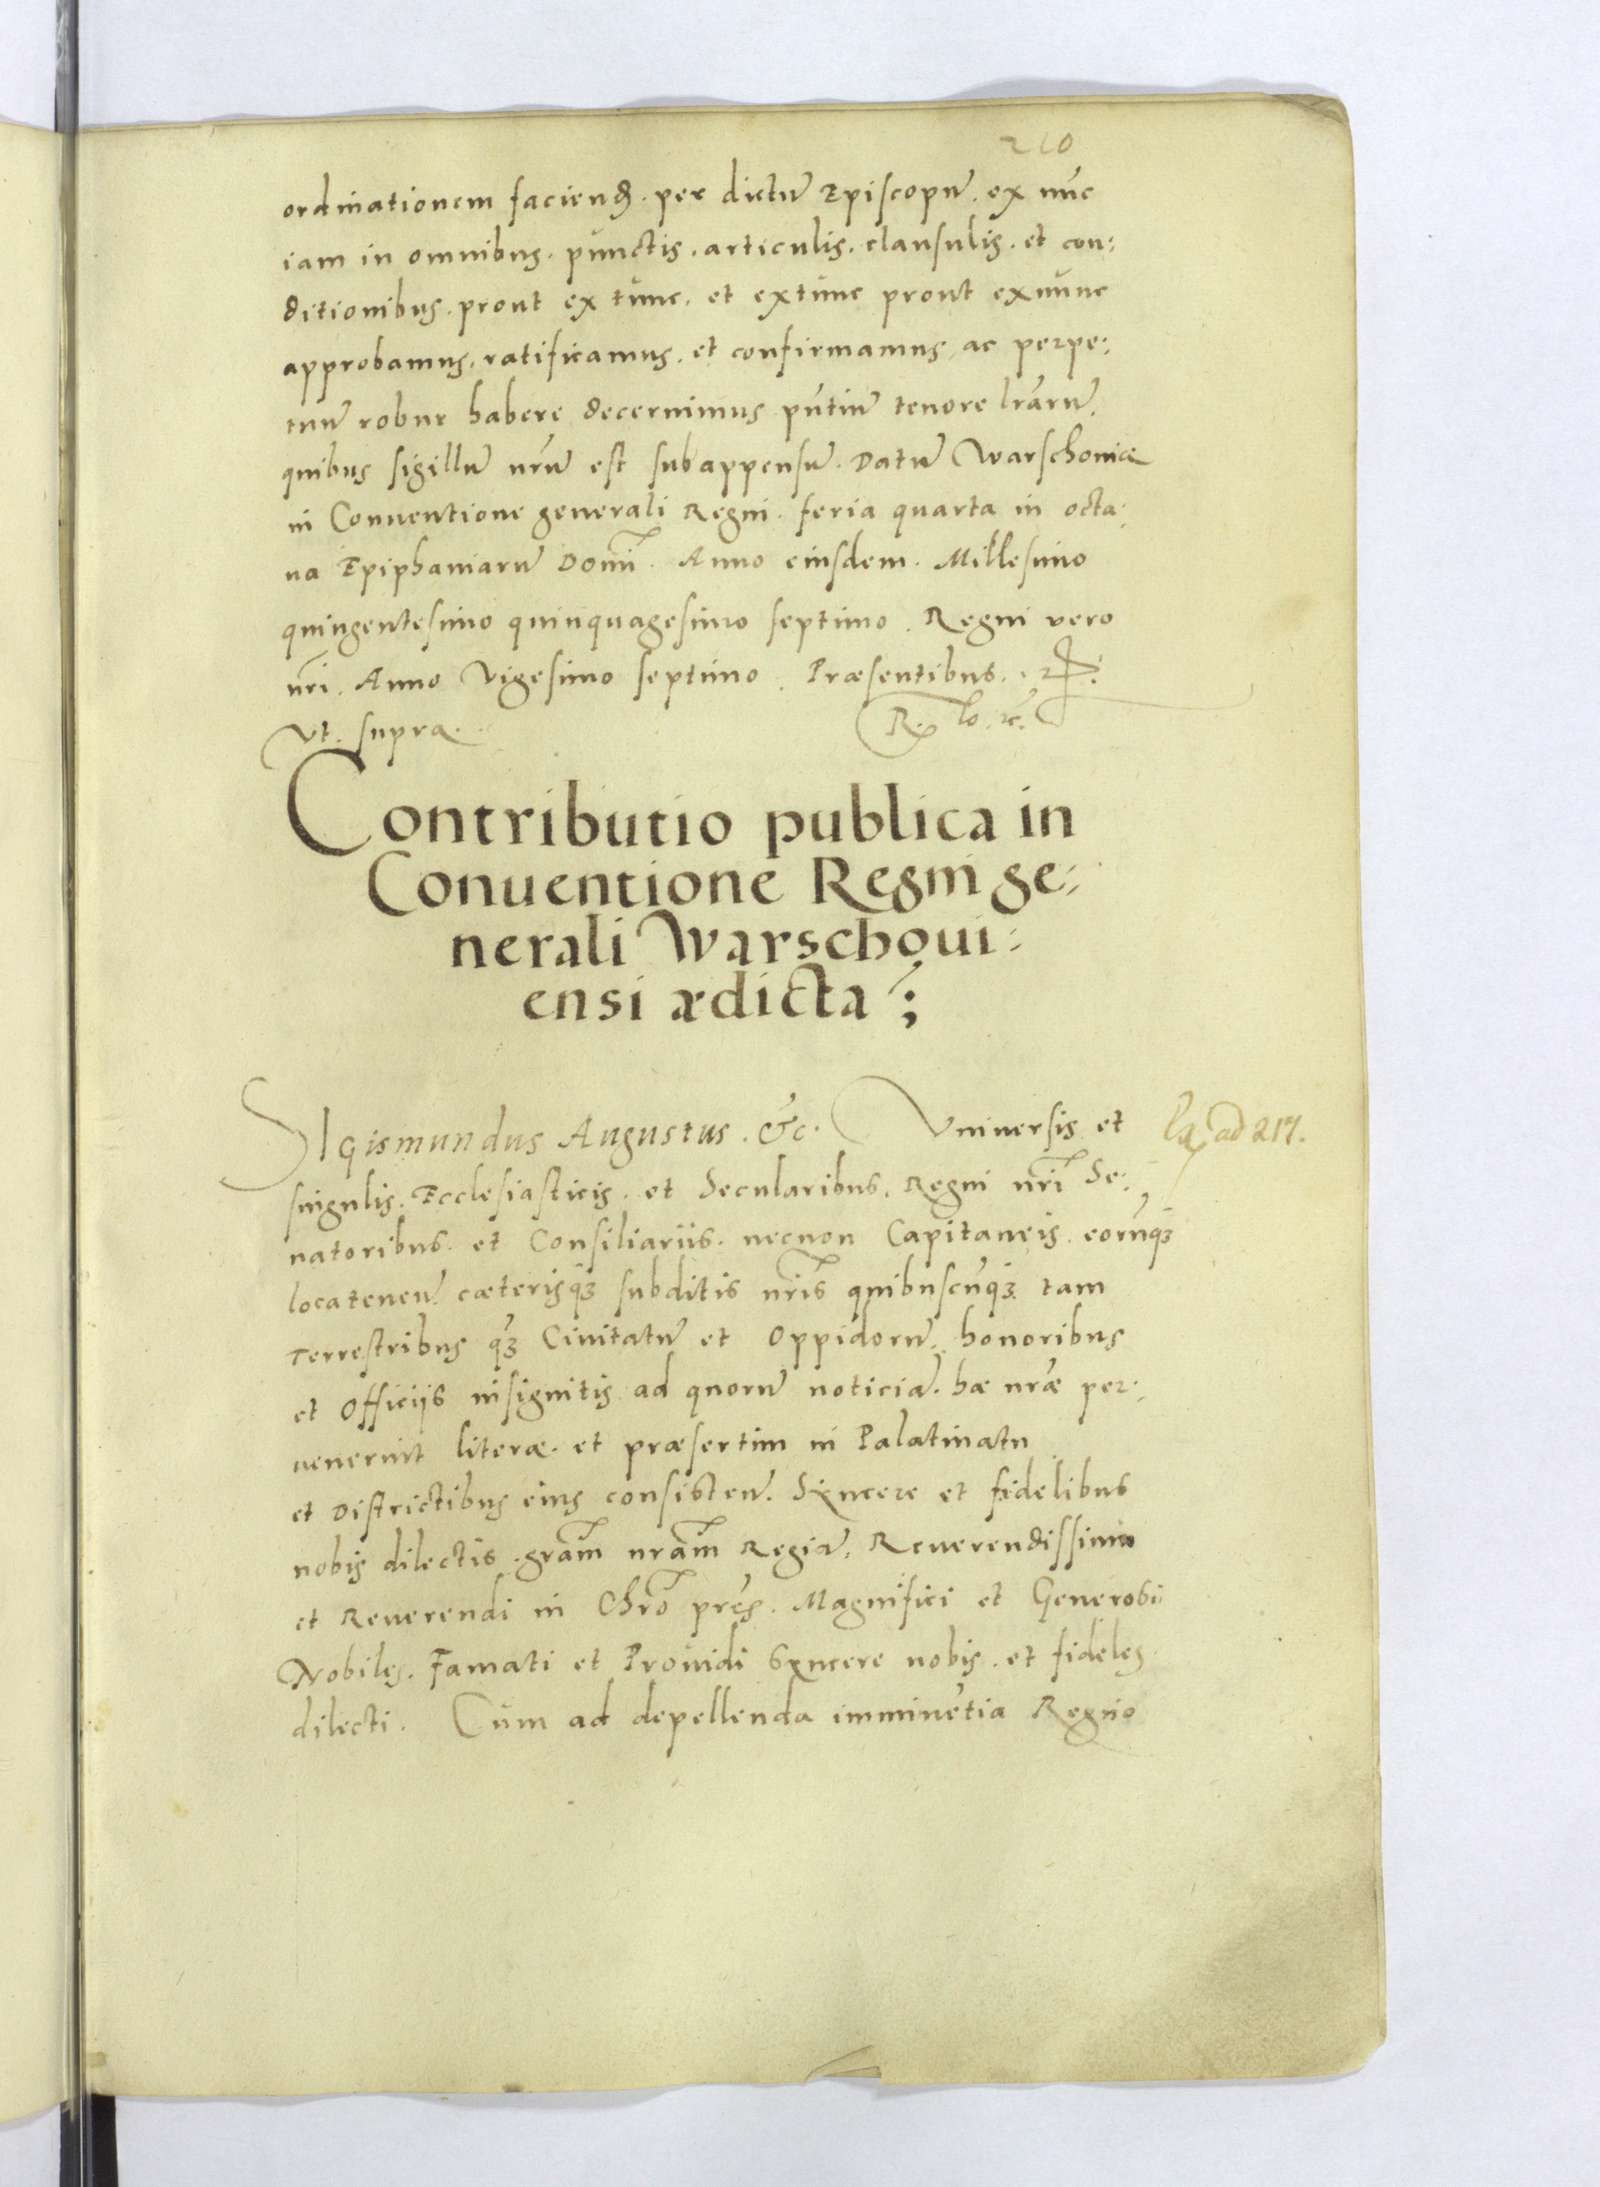 210
ordinationem faciend. per dictū Episcopū. ex nūc
iam in omnibus. punctis. articulis. clausulis. et con:
ditionibus. prout ex tunc. et extunc prout exnunc
approbamus. ratificamus. et confirmamus, ac perpe:
tuū robur habere decernimus pñtiū tenore lrarū.
quibus sigillū nrū est subappensū. Datū Warschoviæ
in Conventione generali Regni. feria quarta in octa:
va Epiphaniarū Domī. Anno eiusdem. Millesimo
quingentesimo quinquagesimo septimo. Regni vero
nri. Anno Vigesimo septimo. Præsentibus.
Vt. supra.
Contributio publica in
Conuentione Regni ge:
nerali Warschoui:
ensi ædicta;
SIgismundus Augustus. &c. Vniuersis et
singulis. Ecclesiasticis. et Secularibus. Regni nri Se:
natoribus. et Consiliariis. necnon Capitaneis. eorūq3
locatenen̄. cæterisq3 subditis nris quibuscūq3 tam
Terrestribus q3 Ciuitatū et Oppidorū. honoribus
et Officijs insignitis ad quorū noticiā. hæ nræ per:
uenerint literæ. et præsertim in Palatinatu
et Districtibus eius consisten̄. Syncere et fidelibus
nobis dilectis. gram nram Regiā. Reuerendissimi
et Reuerendi in Chro pres. Magnifici et Generosi
Nobiles. Famati et Prouidi Syncere nobis. et fideles
dilecti. Cum ad depellenda imminētia Regno
ad 217.